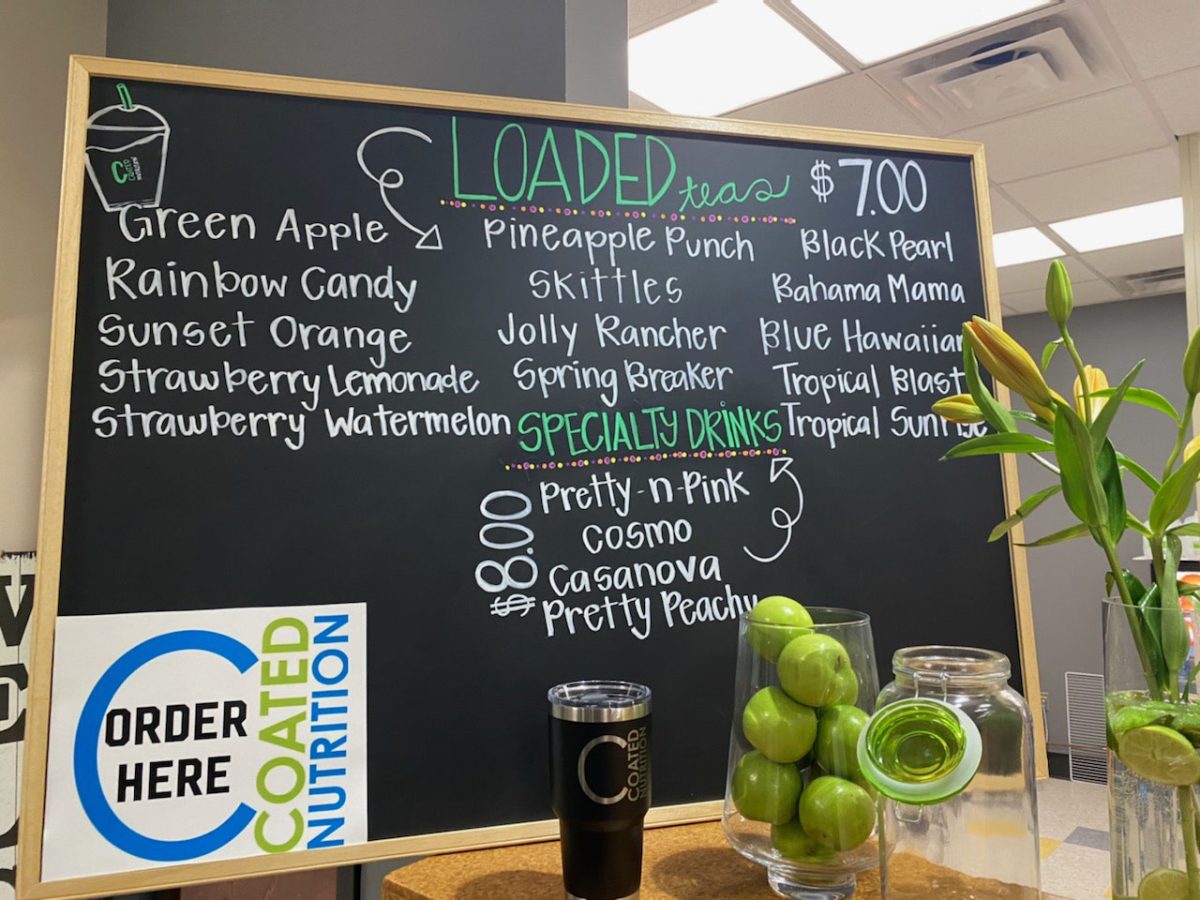 LOADED teas $7.00
Green Apple
Rainbow Candy
Sunset Orange
Strawberry Lemonade
Strawberry Watermelon
Pineapple Punch
Skittles
Jolly Rancher
Spring Breaker
Black Pearl
Bahama Mama
Blue Hawaiian
Tropical Blast
Tropical Sunrise
SPECIALTY DRINKS
$8.00
Pretty-n-Pink
Cosmo
Casanova
Pretty Peachy
C
COATED
NUTRITION
ORDER
HERE
COATED
NUTRITION
C
COATED
NUTRITION